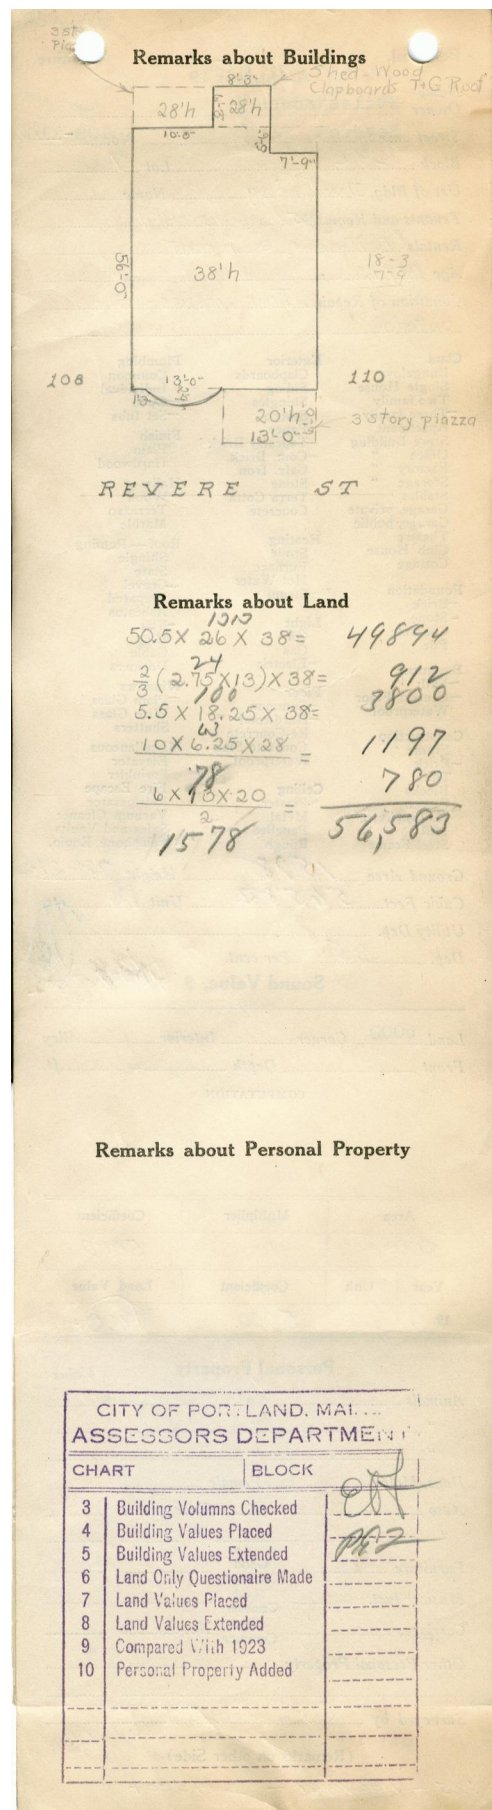 3 st
Pia
Remarks about Buildings
Shed - Wood
Clapboards T+G Roof
8'-3"
28'h
28'h
10'-0"
7'-9"
56'-0"
38'h
18-3
7-9
108
13'-0"
110
20'h
3 story piazza
13'-0"
REVERE ST
Remarks about Land
1313
50.5 X 26 X 38 = 49894
24
2/3 (2.75 X 13) X 38 = 912
100
5.5 X 18.25 X 38 = 3800
10 X 6.25 X 28 = 1197
78
6 X 13 X 20 = 780
2
1578 56,583
Remarks about Personal Property
CITY OF PORTLAND, MAI
ASSESSORS DEPARTMENT
CHART BLOCK
3 Building Volumns Checked
4 Building Values Placed
5 Building Values Extended
6 Land Only Questionaire Made
7 Land Values Placed
8 Land Values Extended
9 Compared With 1923
10 Personal Property Added